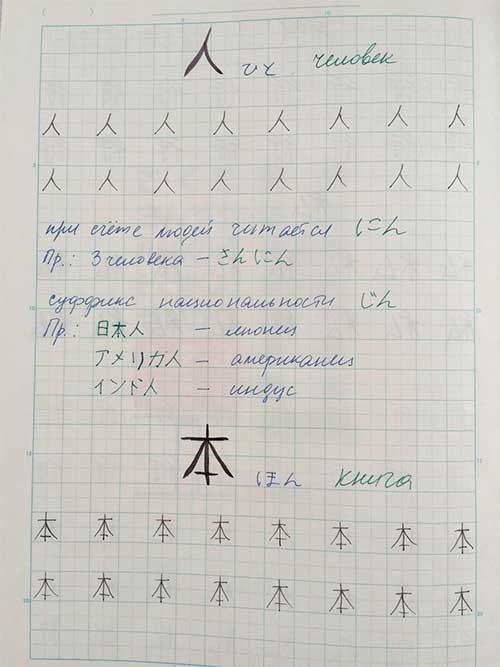 人 ひと человек
人 人 人 人 人 人 人 人
人 人 人 人 人 人 人 人
при счёте людей читается にん
Пр.: 3 человека – さんにん
суффикс национальности じん
Пр.: 日本人 – японец
アメリカ人 – американец
インド人 – индус
本 ほん книга
本 本 本 本 本 本 本 本
本 本 本 本 本 本 本 本